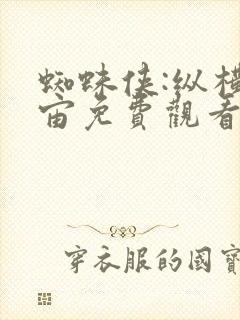 蜘蛛侠:纵横
宙免費觀看
穿衣服的國寶